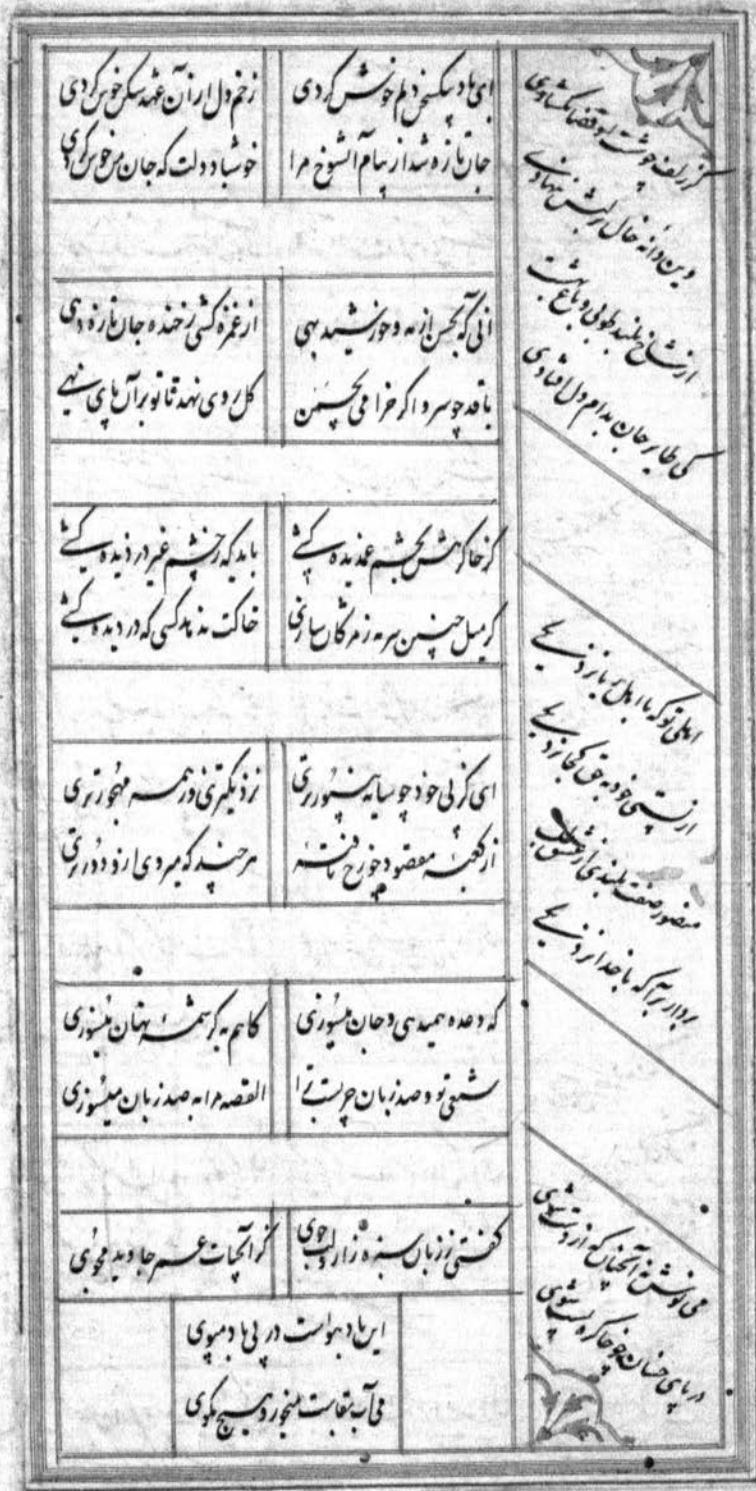 ای باد پیکیش دلم خوش کردی زخم دل از آن عهد شکن خوش کردی
جان تازه شد از پیام آن شوخ مرا خوش باد دلت که جان من خوش کردی
آنی که بحسن از مه و خورشید بهی از غمزه کشی ز خنده جان تازه دهی
با قد چو سرو اگر خرامی بچمن گل روی نهد تا تو بر آن پای نهی
گر خاک رهش بچشم غمدیده کشی باید که ز چشم غیر دزدیده کشی
گر میل چنین سرمه ز مژگان سازی خاکت ندهد کسی که در دیده کشی
ای کز پی خود چو سایه بی‌نورتری نزدیکتری ز همه مهجورتری
از کعبه مقصود چو رخ تافته هر چند که میروی ازو دورتری
گه وعده همی دهی و جان میسوزی گاهم به کرشمه نهان میسوزی
شمعی تو و صد زبان چربست ترا القصه مرا به صد زبان میسوزی
گفتی ز زبان سبزه زار لب جوی کز آبحیات عمر جاوید مجوی
این باد هواست در پی باد مپوی
می آب بقاست میخور و هیچ مگوی
گر زلف خوشت نه قضا بگشادی
وین دانه خال بر لبش ننهادی
از شاخ بلند طوبی و باغ بهشت
کی طایر جان بدام دل افتادی
اهلی تو که با اهل ریا رو نزنی
از پستی خود به حق کجا رو نزنی
منصور صفت بلندی از عشق طلب
بردار برآ که با خدا رو نزنی
می نوش نه آنچنان که از دست شوی
در پای خسان چو خاک ره پست شوی